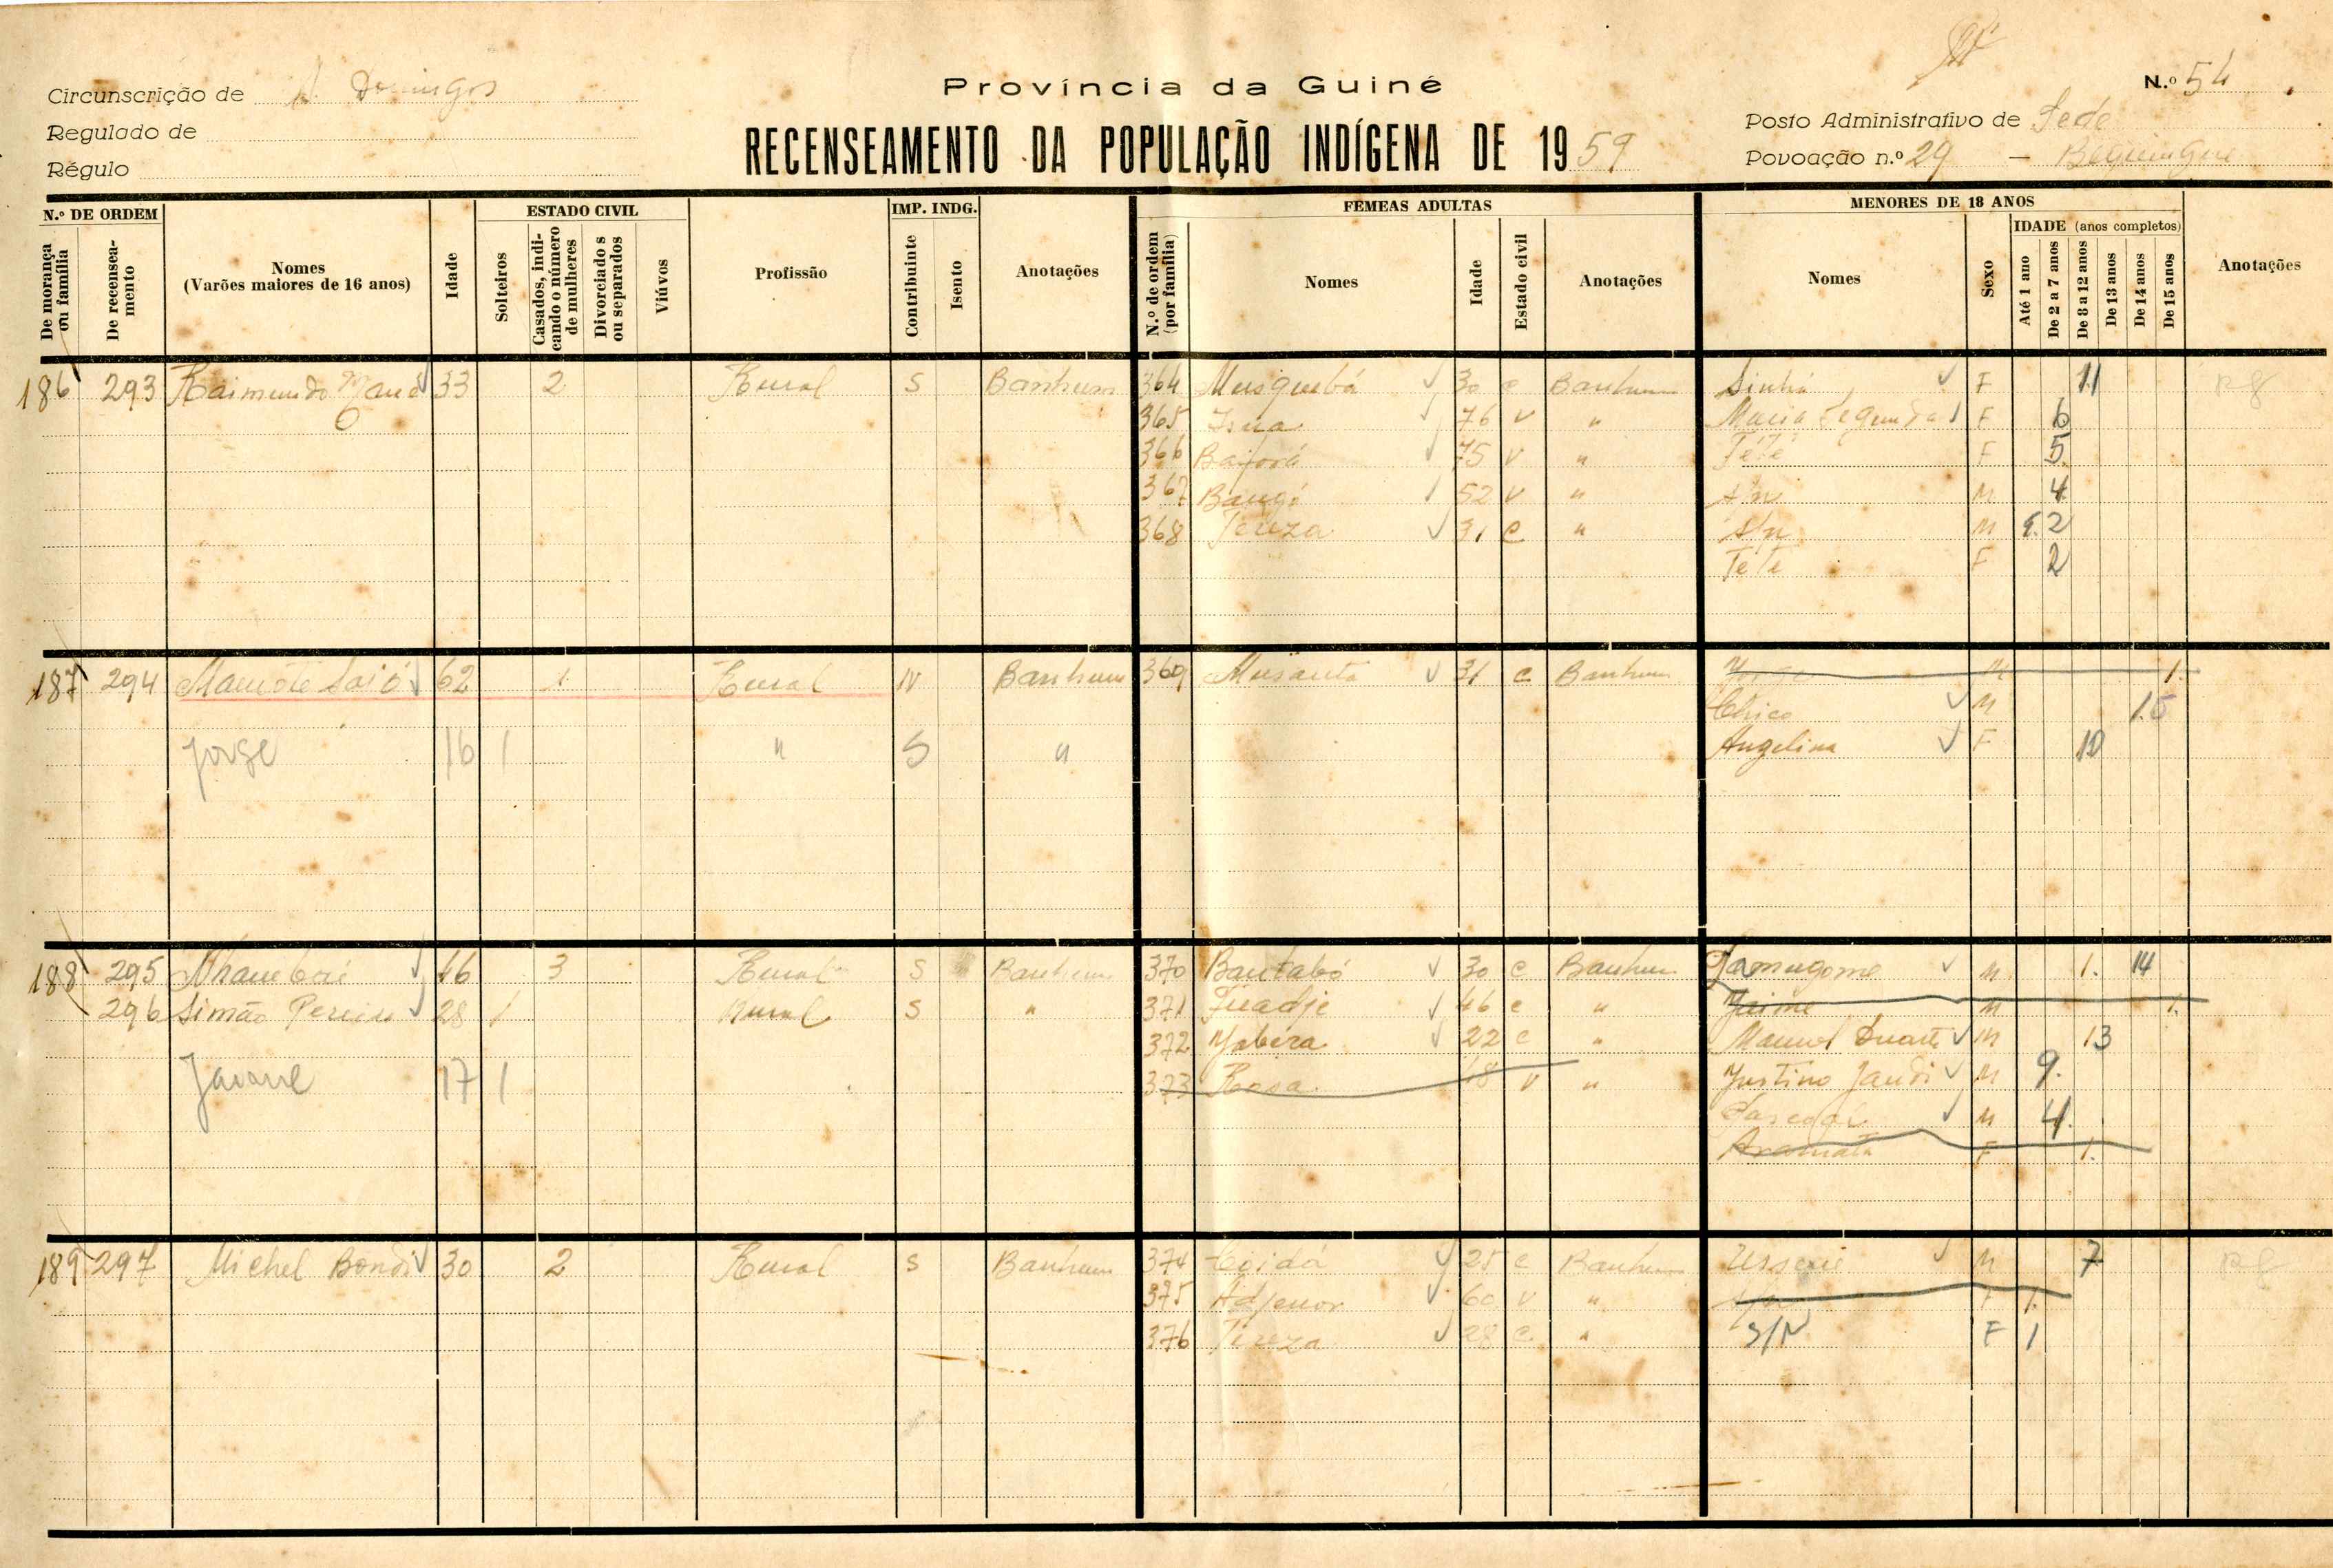 Província da Guiné
N.º 54
Circunscrição de S. Domingos
Regulado de
Régulo
RECENSEAMENTO DA POPULAÇÃO INDÍGENA DE 1959
Posto Administrativo de Sede
Povoação n.º 29 —
N.º DE ORDEM
De morança ou família
De recensea-mento
Nomes
(Varões maiores de 16 anos)
Idade
ESTADO CIVIL
Solteiros
Casados, indi-cando o número de mulheres
Divorciados ou separados
Viúvos
Profissão
IMP. INDG.
Contribuinte
Isento
Anotações
FEMEAS ADULTAS
N.º de ordem (por família)
Nomes
Idade
Estado civil
Anotações
MENORES DE 18 ANOS
Nomes
Sexo
IDADE (anos completos)
Até 1 ano
De 2 a 7 anos
De 8 a 12 anos
De 13 anos
De 14 anos
De 15 anos
Anotações
186 293 Raimundo 33 2 Rural S Banhum 364 Musquebá 30 c Banhum Sinhá F 11
365 Isua 76 v " Maria Segunda F 6
366 75 v " Teté F 5
367 Baugó 52 v " s/n M 4
368 Tereza 31 c " s/n M 2
Teté F 2
187 294 62 1 Rural N Banhum 369 Musanto 31 c Banhum Jorge M 1.
Chico M 15
Jorge 16 1 " S " Angelina F 10
188 295 46 3 Rural S Banhum 370 Bantabó 30 c Banhum Jamugome M 1. 14
296 Simão Pereira 28 1 Rural S " 371 Fuadje 46 c " Jaime M 1.
372 Yabéra 22 c " Manuel Duarte M 13
17 1 373 Rosa 18 v " Justino Jandi M 9.
Pascoal M 4.
Aramata F 1.
189 297 Michel Bondi 30 2 Rural S Banhum 374 Coidá 25 c Banhum M 7
375 Adjenor 60 v " s/n F 1.
376 Tereza 28 c " S/N F 1